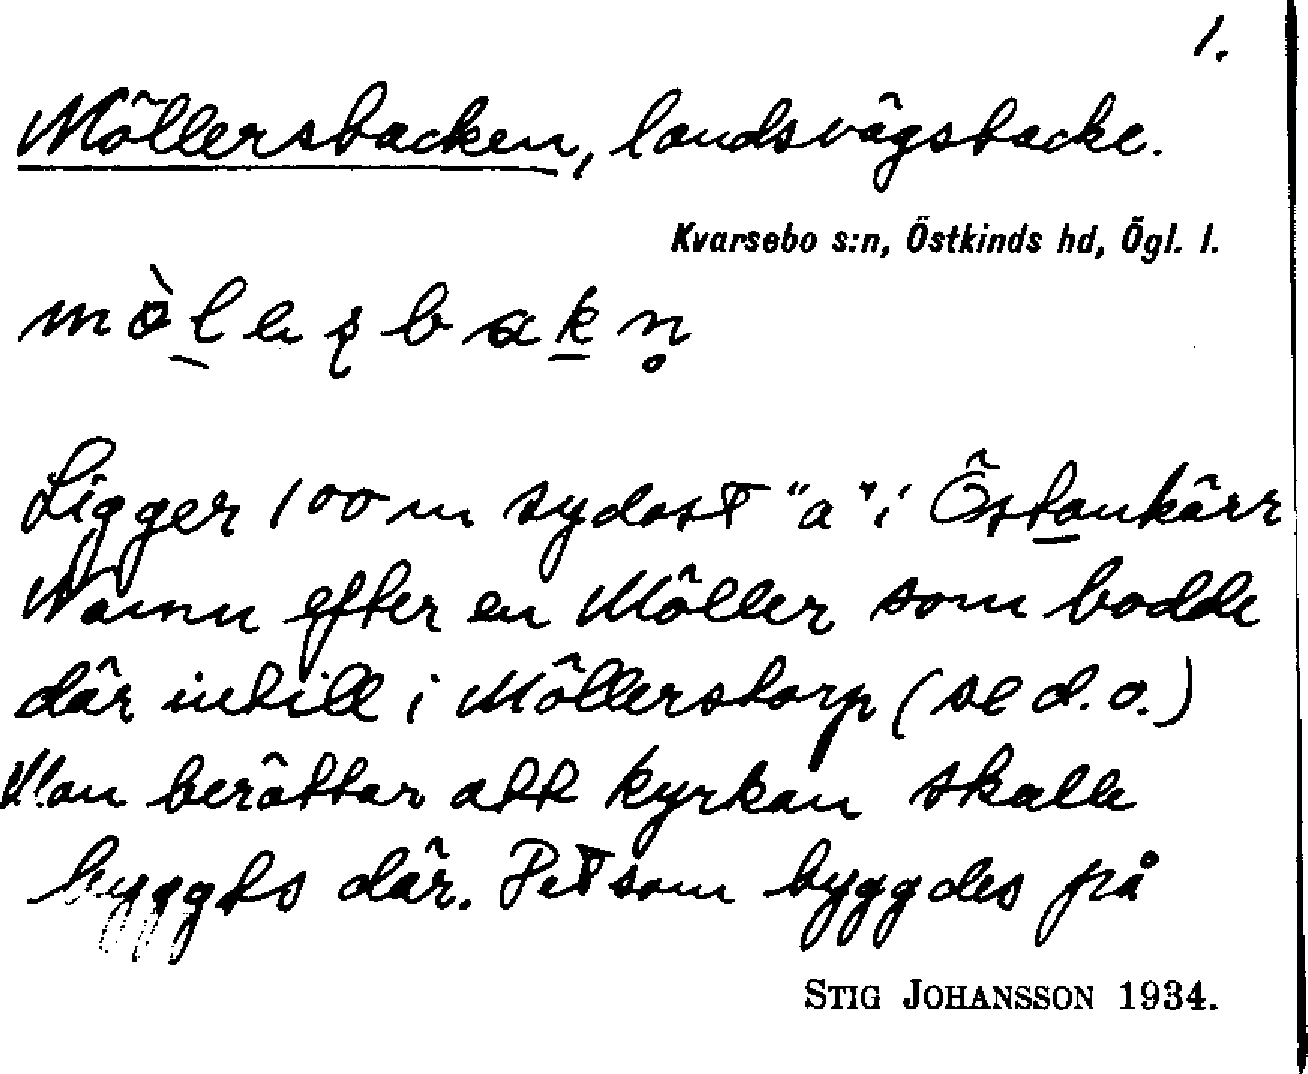 1.
Möllersbacken, landsvägsbacke.
Kvarsebo s:n, Östkinds hd, Ögl. l.
Ligger 100 m sydost "a" i Östankärr
Namn efter en Möller som bodde
där intill i Möllerstorp (se d.o.)
Man berättar att kyrkan skalle
byggts där. Det som byggdes på
STIG JOHANSSON 1934.